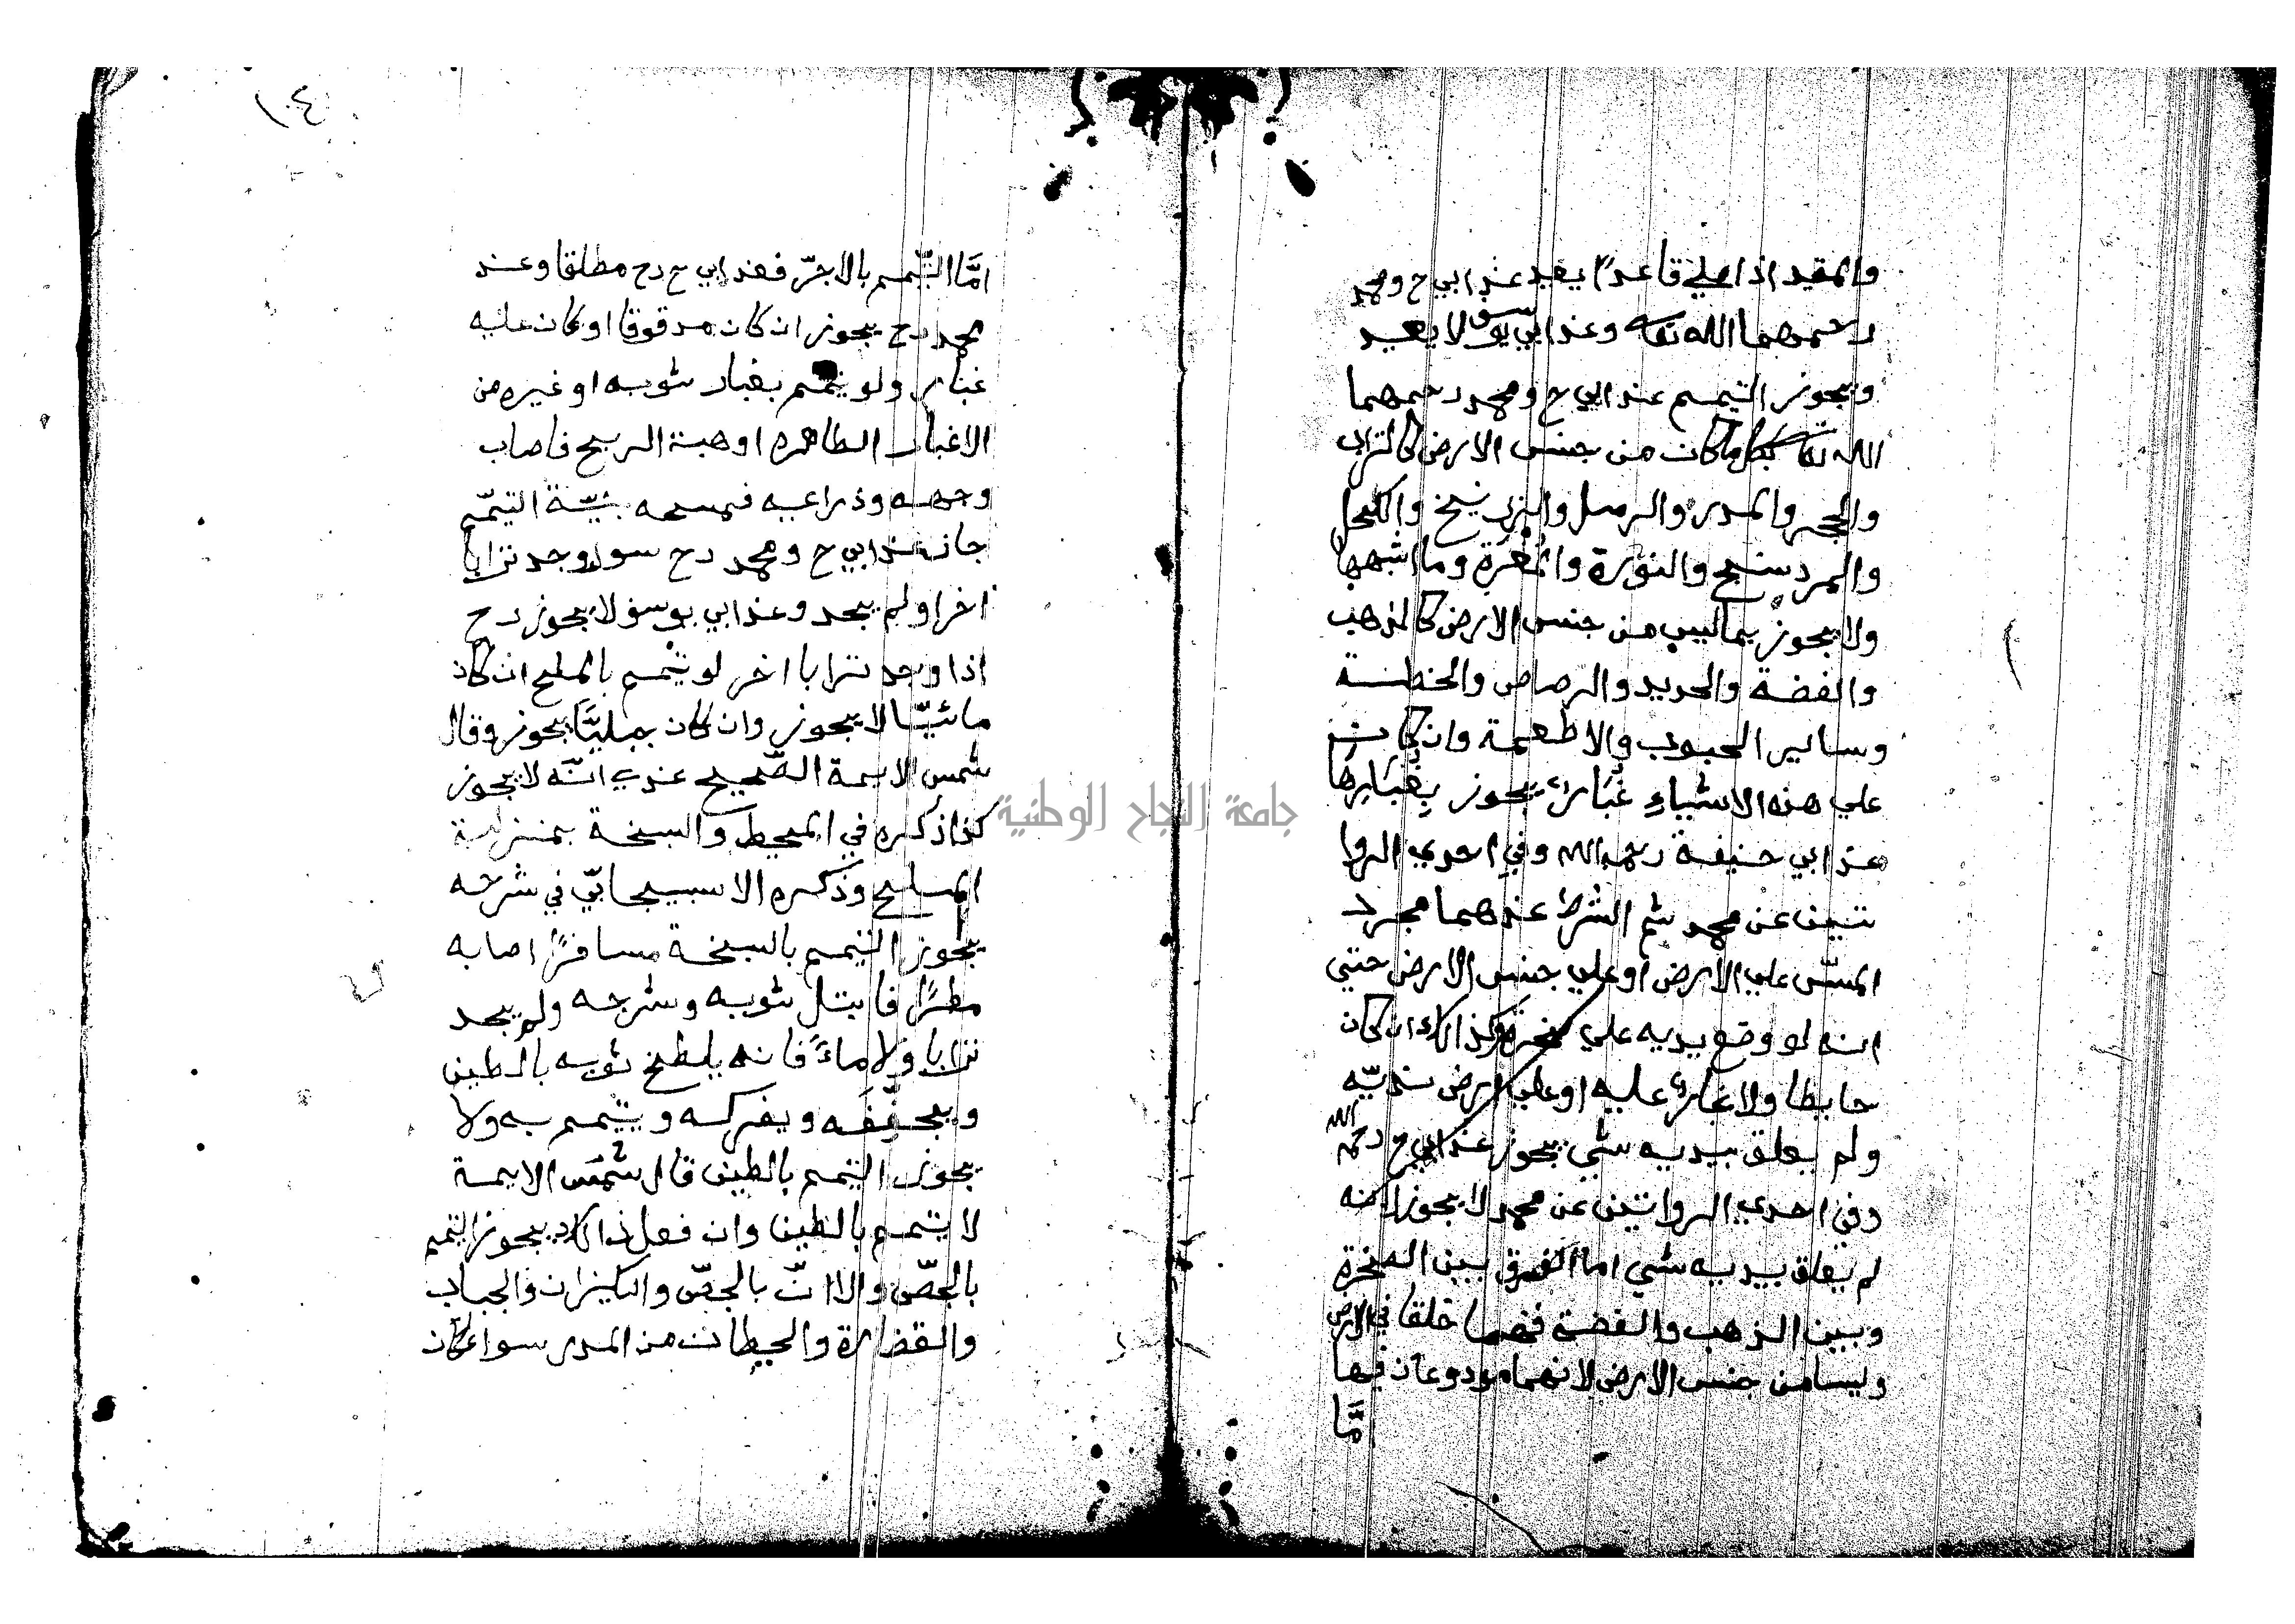 والمقيد اذا صلي قاعداً يعيد عند ابي ح ومحمد
رحمهما الله تعا وعند ابي يوسف لا يعيد
ويجوز التيمم عند ابي ح ومحمد رحمهما
الله تعا بكل ما كان من جنس الارض كالتراب
والحجر والمدر والرمل والزرنيخ والكحل
والمردسنج والنورة والمغرة وما اشبهها
ولا يجوز بما ليس من جنس الارض كالذهب
والفضة والحديد والرصاص والحنطة
وساير الحبوب والاطعمة وان كان
علي هذه الاشياءِ غُبَارٌ يجوز بِغُبَارِها
عند ابي حنيفة رحمه الله وفي احدي الروا
يتين عن محمد ثم الشرط عندهما مجرد
المسّ علي الارض او علي جنس الارض حتي
انه لو وضع يديه علي صخرة وكذالك ان كان
حايطا ولا غبارٌ عليه او علي ارض نديّه
ولم يعلق بيديه شي يجوز عند ابي ح رحمه الله
وفي احدي الروايتين عن محمد لا يجوز لانه
لم يعلق بيديه شي اما الفرق بين الصخرة
وبين الذهب والفضة فهما خلقا في الارض
وليسا من جنس الارض لانهما مودوعان فيها
امَّا
١٠٤
امَّا التيّمم بالاجرّ فعند ابي ح رح مطلقا وعند
محمد رح يجوز ان كان مدقوقا او كان عليه
غبار ولو تيمم بغبار ثوبه او غيره من
الاغبار الطاهره او هبة الريح فاصاب
وجهه وذراعيه فمسحه بنيّة التيمّم
جاز عند ابي ح ومحمد رح سوا وجد ترابا
اخر او لم يجد وعند ابي يوسف لا يجوز رح
اذا وجد ترابا اخر لو تيمم بالملح ان كان
مائيّا لا يجوز وان كان جبليَّا يجوز وقال
شمس الايمة الصّحيح عندي انّه لا يجوز
كذا ذكره في المحيط والسبخة بمنزلة
الملح وذكره الاسبيجابيّ في شرحه
يجوز التيمم بالسبخة مسافرًا اصابه
مطرًا فابتل ثوبه وسرجه ولم يجد
ترابا ولا ماءً فانه يلطخ ثوبه بالطين
ويجفّفَه ويفركه ويتيمم به ولا
يجوز التيمم بالطين قال شمس الايمة
لا يتيمم بالطين وان فعل ذالك يجوز التيمم
بالجصّ والا انّ بالجصّ والكيزان والجباب
والقضارة والحيطان من المدر سوا كان
جامعة النجاح الوطنية